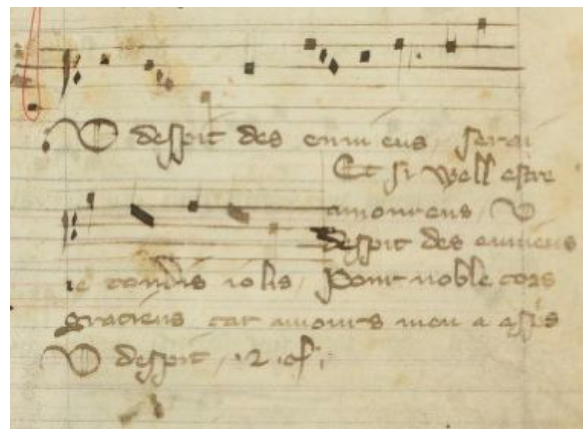 U despit des enuieus, serai
Et si well estre
amoureus, U
despit des enuieus
ie toudis iolis, Pour noble cors
gracieus car amours men a espis
U despit,